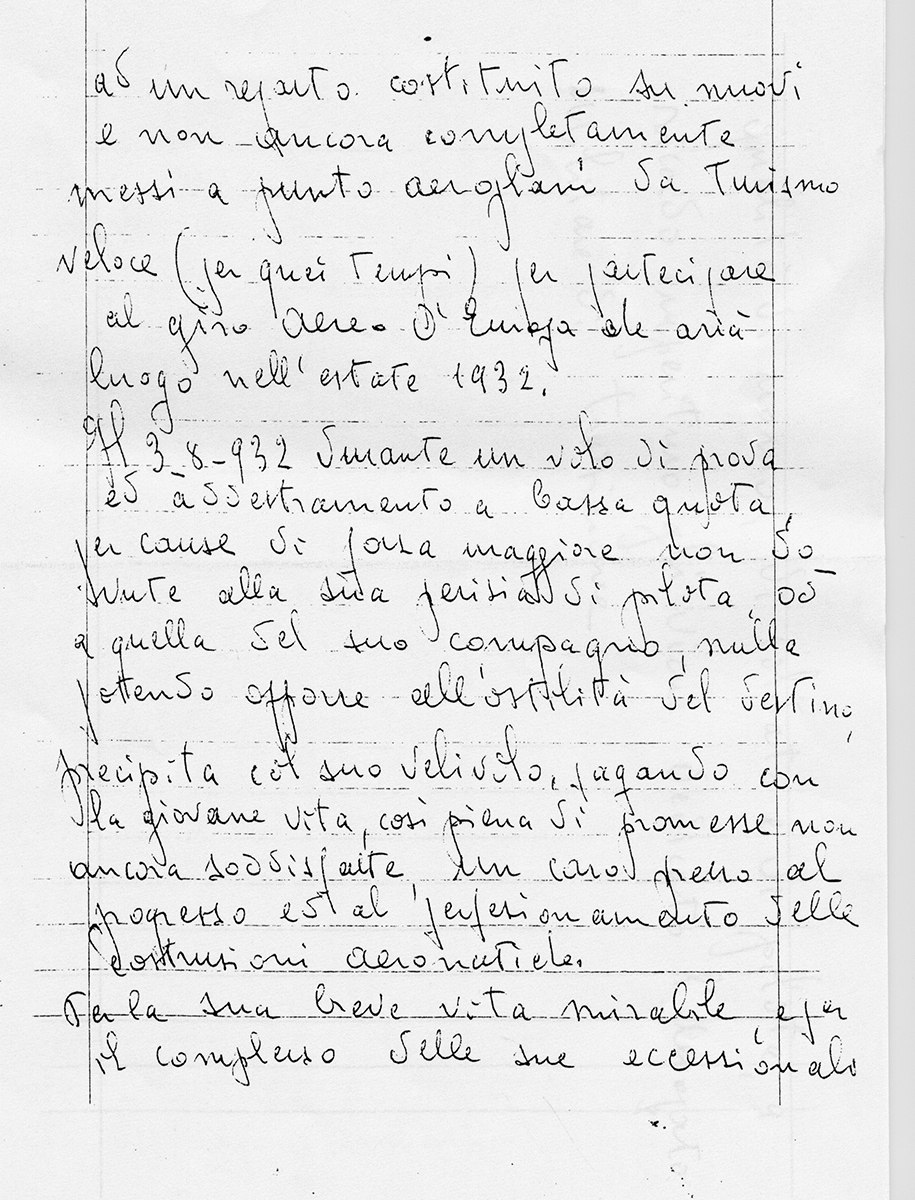 ad un reparto costituito su nuovi
e non ancora completamente
messi a punto aeroplani da Turismo
veloce (per quei tempi) per partecipare
al giro aereo d'Europa che avrà
luogo nell'estate 1932.
Il 3-8-932 durante un volo di prova
ed addestramento a bassa quota,
per cause di forza maggiore non do
vute alla sua perizia di pilota, od
a quella del suo compagno, nulla
potendo opporre all'ostilità del destino,
precipita col suo velivolo, pagando con
la giovane vita, così piena di promesse non
ancora soddisfatte, un caro prezzo al
progresso ed al perfezionamento delle
costruzioni aeronatiche.
Per la sua breve vita mirabile, e per
il complesso delle sue eccezionali